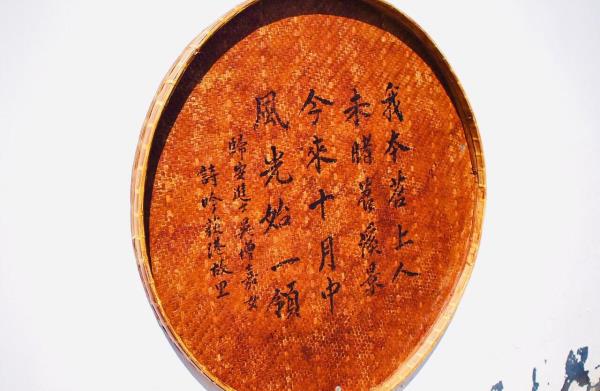 我本苕上人
未睹苕溪景
今來十月中
風光始一領
歸安進士吳增嘉
詩吟荻港故里